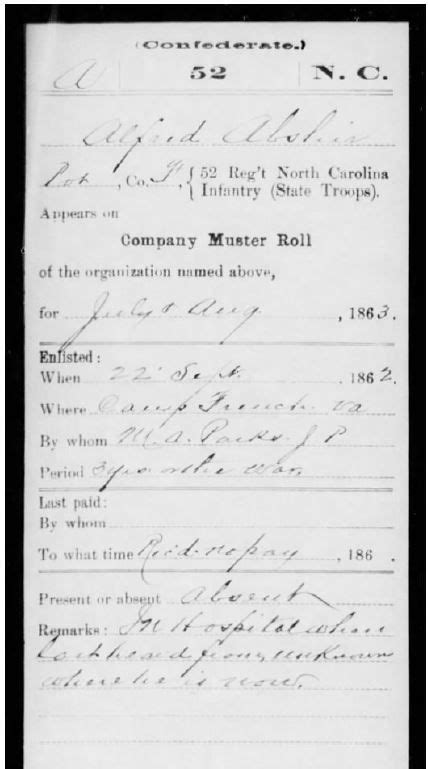 (Confederate.)
A | 52 | N. C.
Alfred Abshir
Pvt, Co. F, { 52 Reg't North Carolina
Infantry (State Troops).
Appears on
Company Muster Roll
of the organization named above,
for July & Aug, 1863.
Enlisted:
When 22 Sept, 1862.
Where Camp French Va
By whom M. A. Parks J P
Period 3 yrs or the War
Last paid:
By whom
To what time Rec'd no pay, 186 .
Present or absent Absent
Remarks: In Hospital when
last heard from, unknown
where he is now.